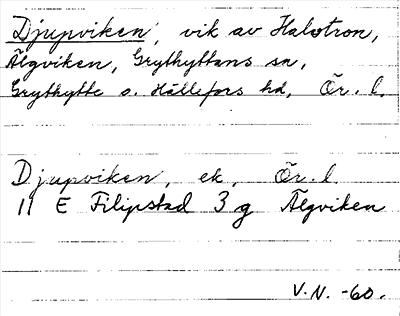 Djupviken, vik av Halvtron,
Älgviken, Grythyttans sn,
Grythytte o. Hällefors hd, Ör. l.
Djupviken, ek, Ör. l
11 E Filipstad 3 g Älgviken
V. N. -60.